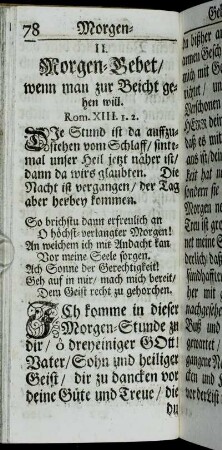 78 Morgen-
II.
Morgen-Gebet/
wenn man zur Beicht ge-
hen will.
Rom. XIII. 1. 2.
DIe Stund ist da auffzu-
stehen vom Schlaff/ sinte-
mal unser Heil jetzt näher ist/
dann da wirs glaubten. Die
Nacht ist vergangen/ der Tag
aber herbey kommen.
So brichstu dann erfreulich an
O höchst-verlangter Morgen!
An welchem ich mit Andacht kan
Vor meine Seele sorgen.
Ach Sonne der Gerechtigkeit!
Geh auf in mir/ mach mich bereit/
Dem Geist recht zu gehorchen.
ICh komme in dieser
Morgen-Stunde zu
dir/ ô dreyeiniger GOtt!
Vater/ Sohn und heiliger
Geist/ dir zu dancken vor
deine Güte und Treue/ die
du